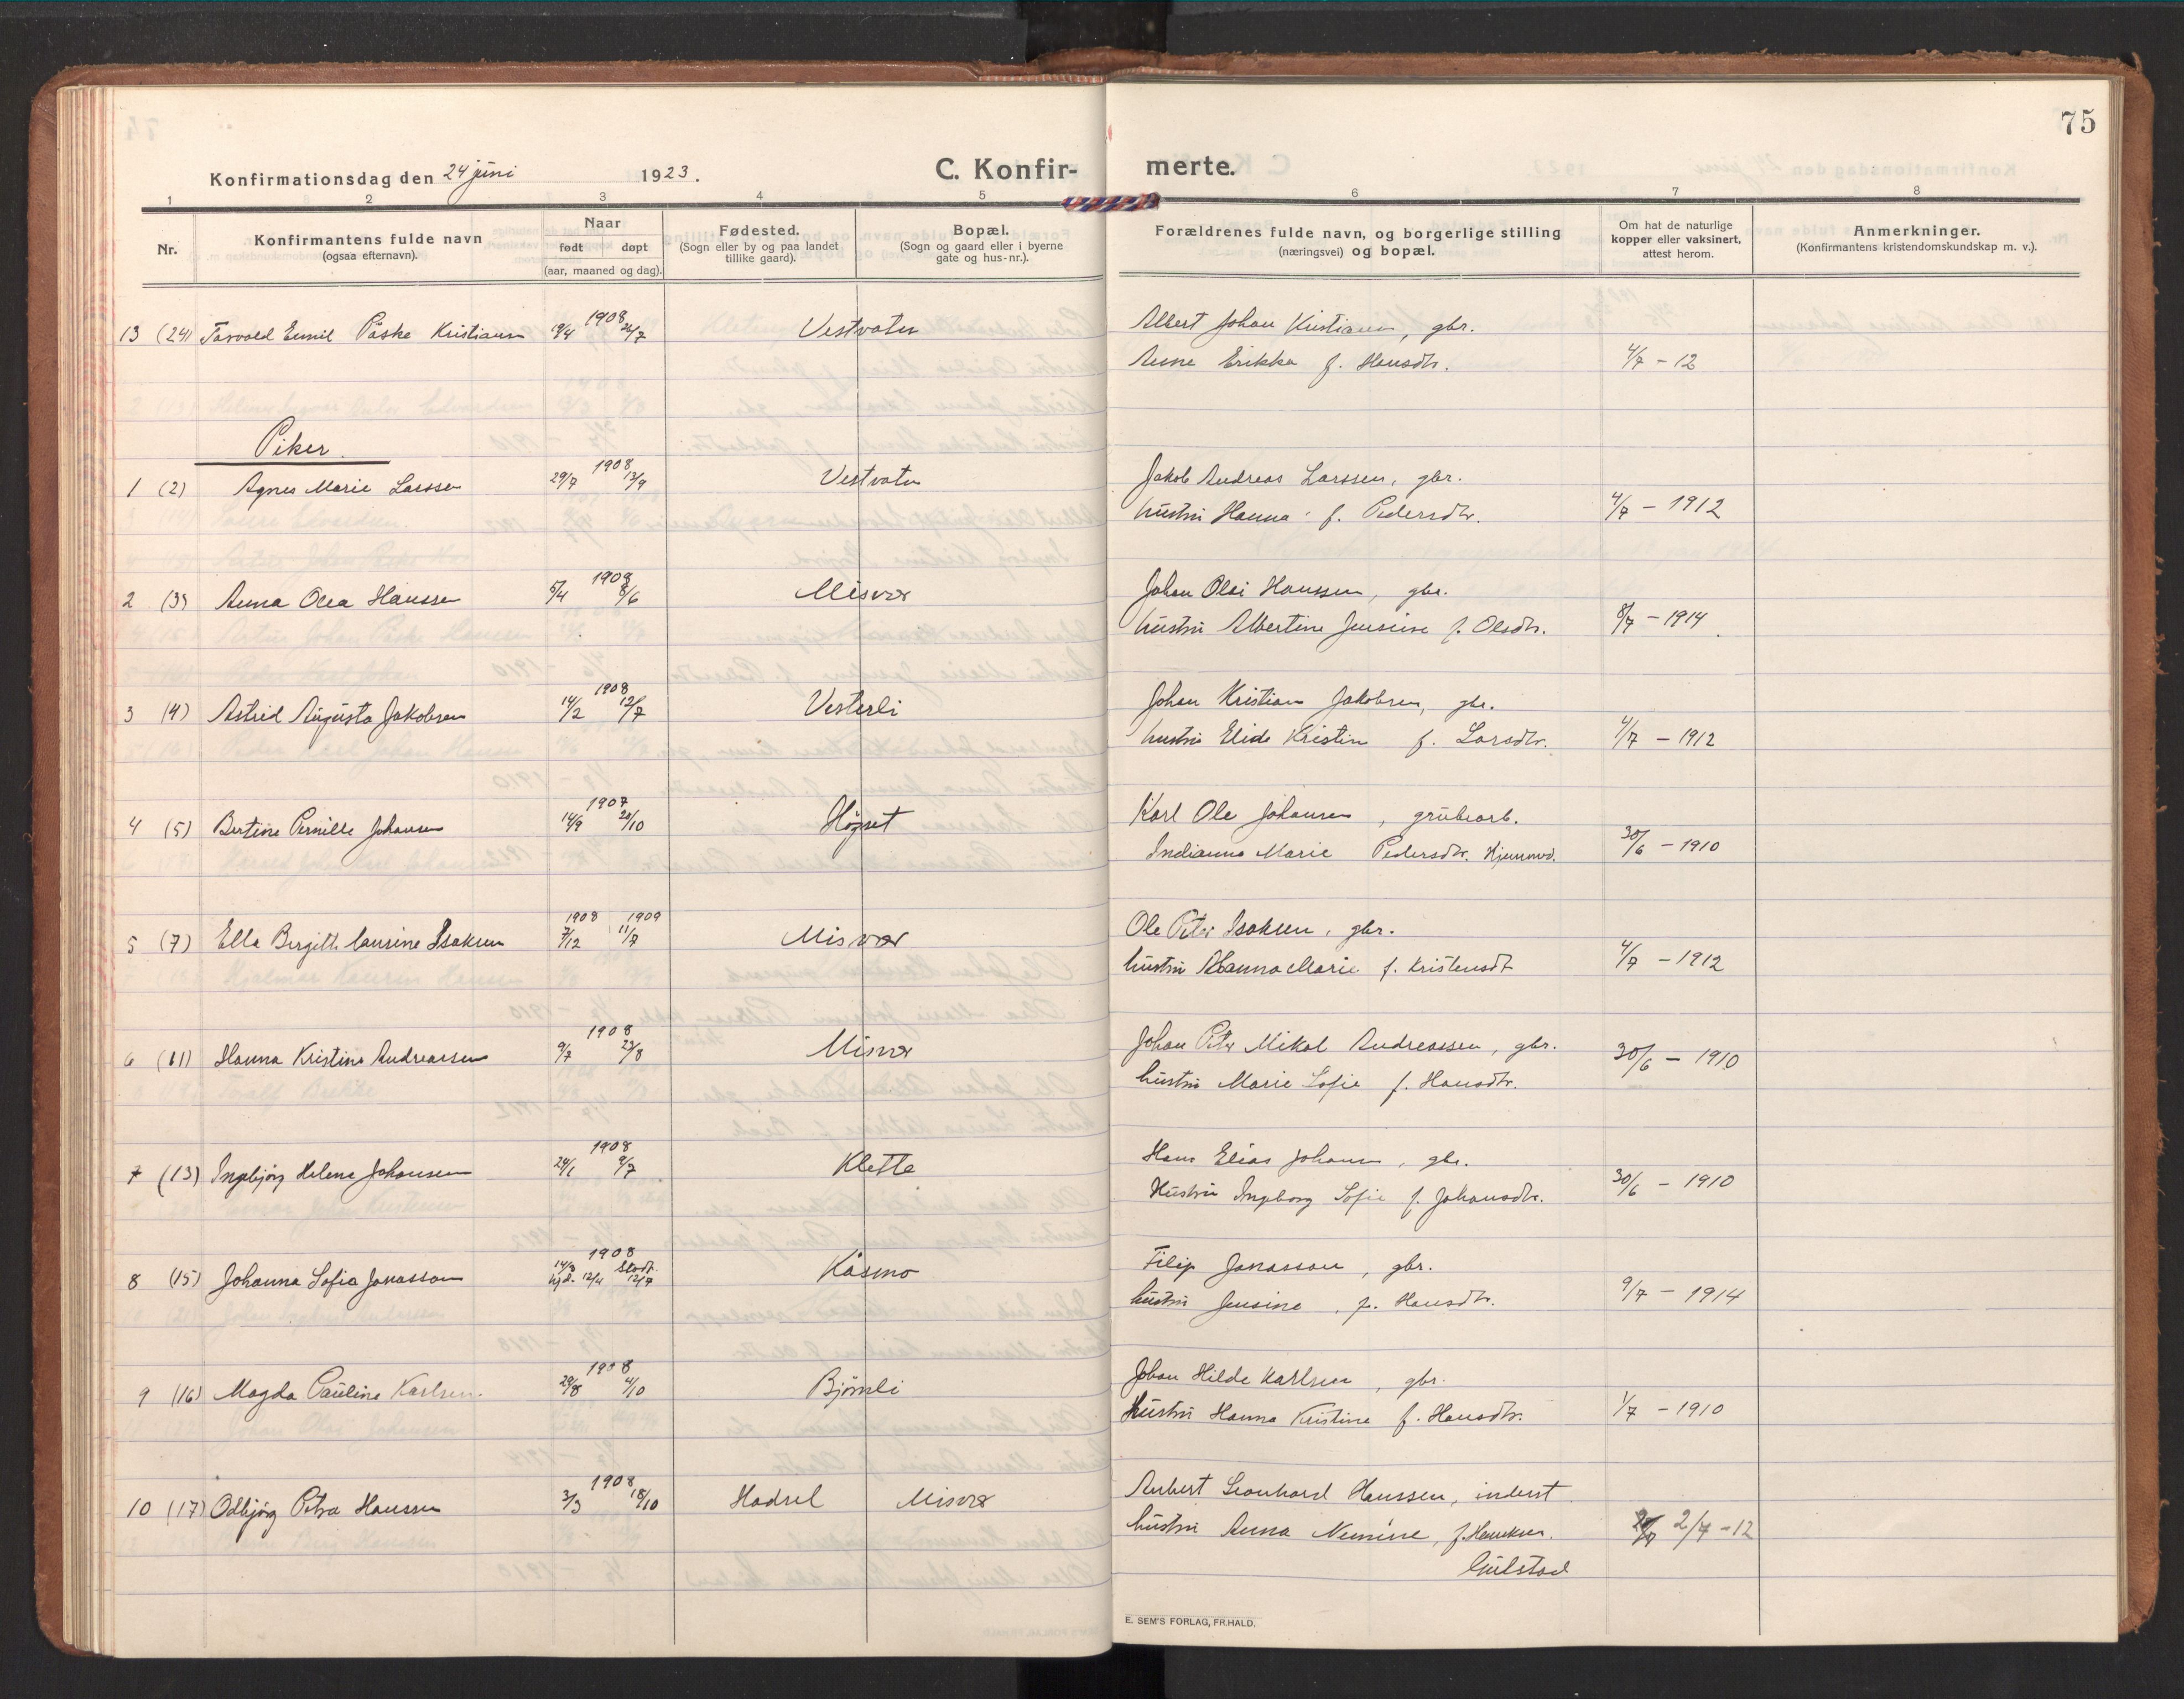 75
Konfirmationsdag den 24 juni 1923.
C. Konfir-
merte.
1 2 3 4 5 6 7 8
Nr.
Konfirmantens fulde navn
(ogsaa efternavn).
Naar
født døpt
(aar, maaned og dag).
Fødested.
(Sogn eller by og paa landet
tillike gaard).
Bopæl.
(Sogn og gaard eller i byerne
gate og hus-nr.).
Forældrenes fulde navn, og borgerlige stilling
(næringsvei) og bopæl.
Om hat de naturlige
kopper eller vaksinert,
attest herom.
Anmerkninger.
(Konfirmantens kristendomskundskap m. v.).
1908
13 (24) Torvald Emil Påske Kristiansen 19/4 26/7 Vestvatn Albert Johan Kristiansen, gbr.
Anne Erikka f. Hansdtr. 4/7 - 12
Piker.
1908
1 (2) Agnes Marie Larssen 29/7 13/9 Vestvatn Jakob Andreas Larssen, gbr.
hustru Hanna f. Pedersdtr. 4/7 - 1912
1908
2 (3) Anna Olea Hanssen 5/4 8/6 Misvær Johan Olai Hanssen, gbr.
hustru Albertine Jensine f. Olsdtr. 8/7 - 1914
1908
3 (4) Astrid Augusta Jakobsen 14/2 12/7 Vesterli Johan Kristian Jakobsen, gbr.
hustru Elide Kristin f. Larsdtr. 4/7 - 1912
1907
4 (5) Bertine Pernille Johansen 14/9 20/10 Høgset Karl Ole Johansen, grubearb.
Indianna Marie Pedersdtr. 30/6 - 1910
1908 1909
5 (7) Ella Bergitte Laurine Isaksen 7/12 11/7 Misvær Ole Peter Isaksen, gbr.
hustru Hanna Marie f. Kristensdt 4/7 - 1912
1908
6 (11) Hanna Kristine Andreassen 9/7 23/8 Misvær Johan Peter Mikal Andreassen, gbr. 30/6 - 1910
hustru Marie Sofie f. Hansdtr.
1908
7 (13) Ingebjørg Helene Johansen 24/1 9/7 Kletta Hans Elias Johansen, gbr.
Hustru Ingeborg Sofie f. Johansdtr. 30/6 - 1910
1908
8 (15) Johanna Sofia Jonasson 14/3 Stadf.
hjd. 12/4 12/7 Kåsmo Filip Jonasson, gbr.
hustru Jensine, f. Hansdtr. 9/7 - 1914
1908
9 (16) Magda Pauline Karlsen. 29/8 4/10 Bjørnli Johan Hilde Karlsen, gbr.
Hustru Hanna Kristine f. Hansdtr. 1/7 - 1910
1908
10 (17) Odbjørg Petra Hanssen 3/3 18/10 Hadsel Misvær Anbert Leonhard Hanssen, inderst
hustru Anna Numine, f. Henriksen. 2/7 - 12
Gulstad
E. SEM'S FORLAG, FR.HALD.